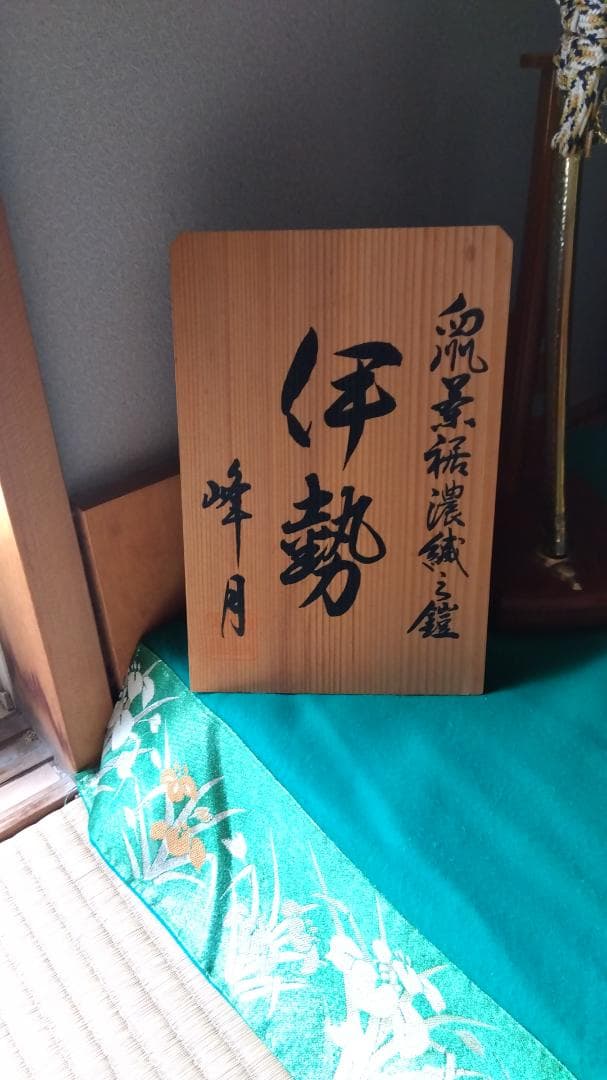 裾濃縅之鎧
伊勢
峰月